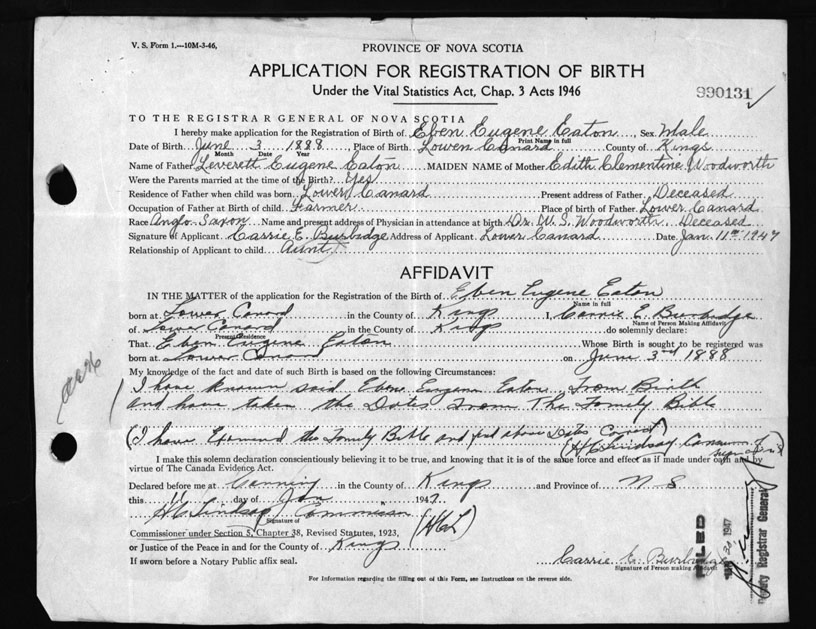 V. S. Form 1.---10M-3-46,
PROVINCE OF NOVA SCOTIA
APPLICATION FOR REGISTRATION OF BIRTH
Under the Vital Statistics Act, Chap. 3 Acts 1946
990131
TO THE REGISTRAR GENERAL OF NOVA SCOTIA
I hereby make application for the Registration of Birth of Eben Eugene Eaton, Sex Male
Print Name in full
Date of Birth June 3 1888, Place of Birth Lower Canard County of Kings
Month Date Year
Name of Father Leverett Eugene Eaton MAIDEN NAME of Mother Edith Clementine Woodworth
Were the Parents married at the time of the Birth? Yes
Residence of Father when child was born Lower Canard Present address of Father Deceased
Occupation of Father at Birth of child Farmer Place of birth of Father Lower Canard
Race Anglo Saxon Name and present address of Physician in attendance at birth Dr. W. S. Woodworth. Deceased
Signature of Applicant Carrie E. Burbidge Address of Applicant Lower Canard Date Jan. 11th 1947
Relationship of Applicant to child Aunt
AFFIDAVIT
IN THE MATTER of the application for the Registration of the Birth of Eben Eugene Eaton
Name in full
born at Lower Canard in the County of Kings I, Carrie E. Burbidge
Name of Person Making Affidavit
of Lower Canard in the County of Kings do solemnly declare:
Present Residence
That Eben Eugene Eaton Whose Birth is sought to be registered was
born at Lower Canard on June 3rd 1888
My knowledge of the fact and date of such Birth is based on the following Circumstances:
I have known said Eben Eugene Eaton From Birth
and have taken the Dates From The Family Bible
(I have Examined the Family Bible and find above Dates Correct)
(H C Lindsay
I make this solemn declaration conscientiously believing it to be true, and knowing that it is of the same force and effect as if made under oath and by
virtue of The Canada Evidence Act.
Declared before me at Canning in the County of Kings and Province of N S
this 11 day of Jan 1947.
H C Lindsay Commissioner
Signature of
(HCL)
Commissioner under Section 5, Chapter 38, Revised Statutes, 1923,
or Justice of the Peace in and for the County of Kings
If sworn before a Notary Public affix seal.
Carrie E. Burbidge
Signature of Person making Affidavit
FILED
1947
Deputy Registrar General
For Information regarding the filling out of this Form, see Instructions on the reverse side.